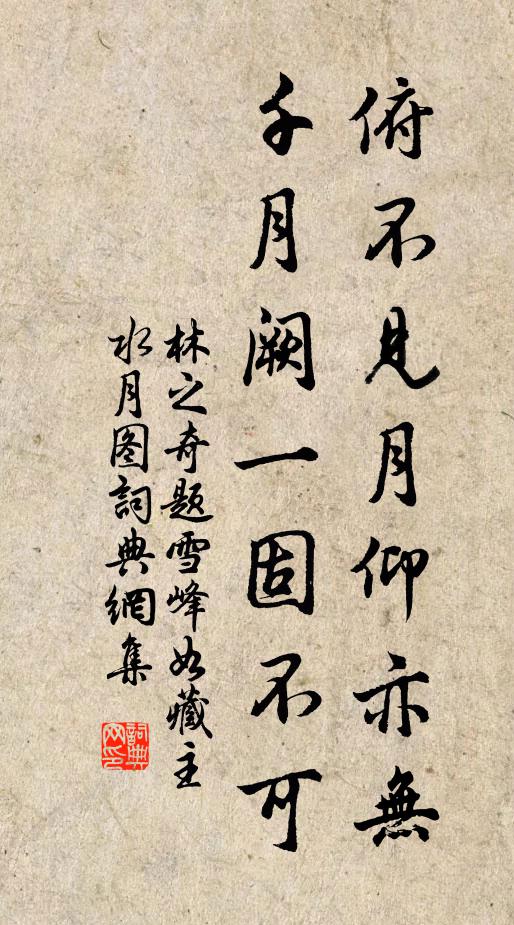 俯不见月仰亦無
千月阙一固不可
林之奇题雪峰如藏主
水月图詞典網集
詞典网印